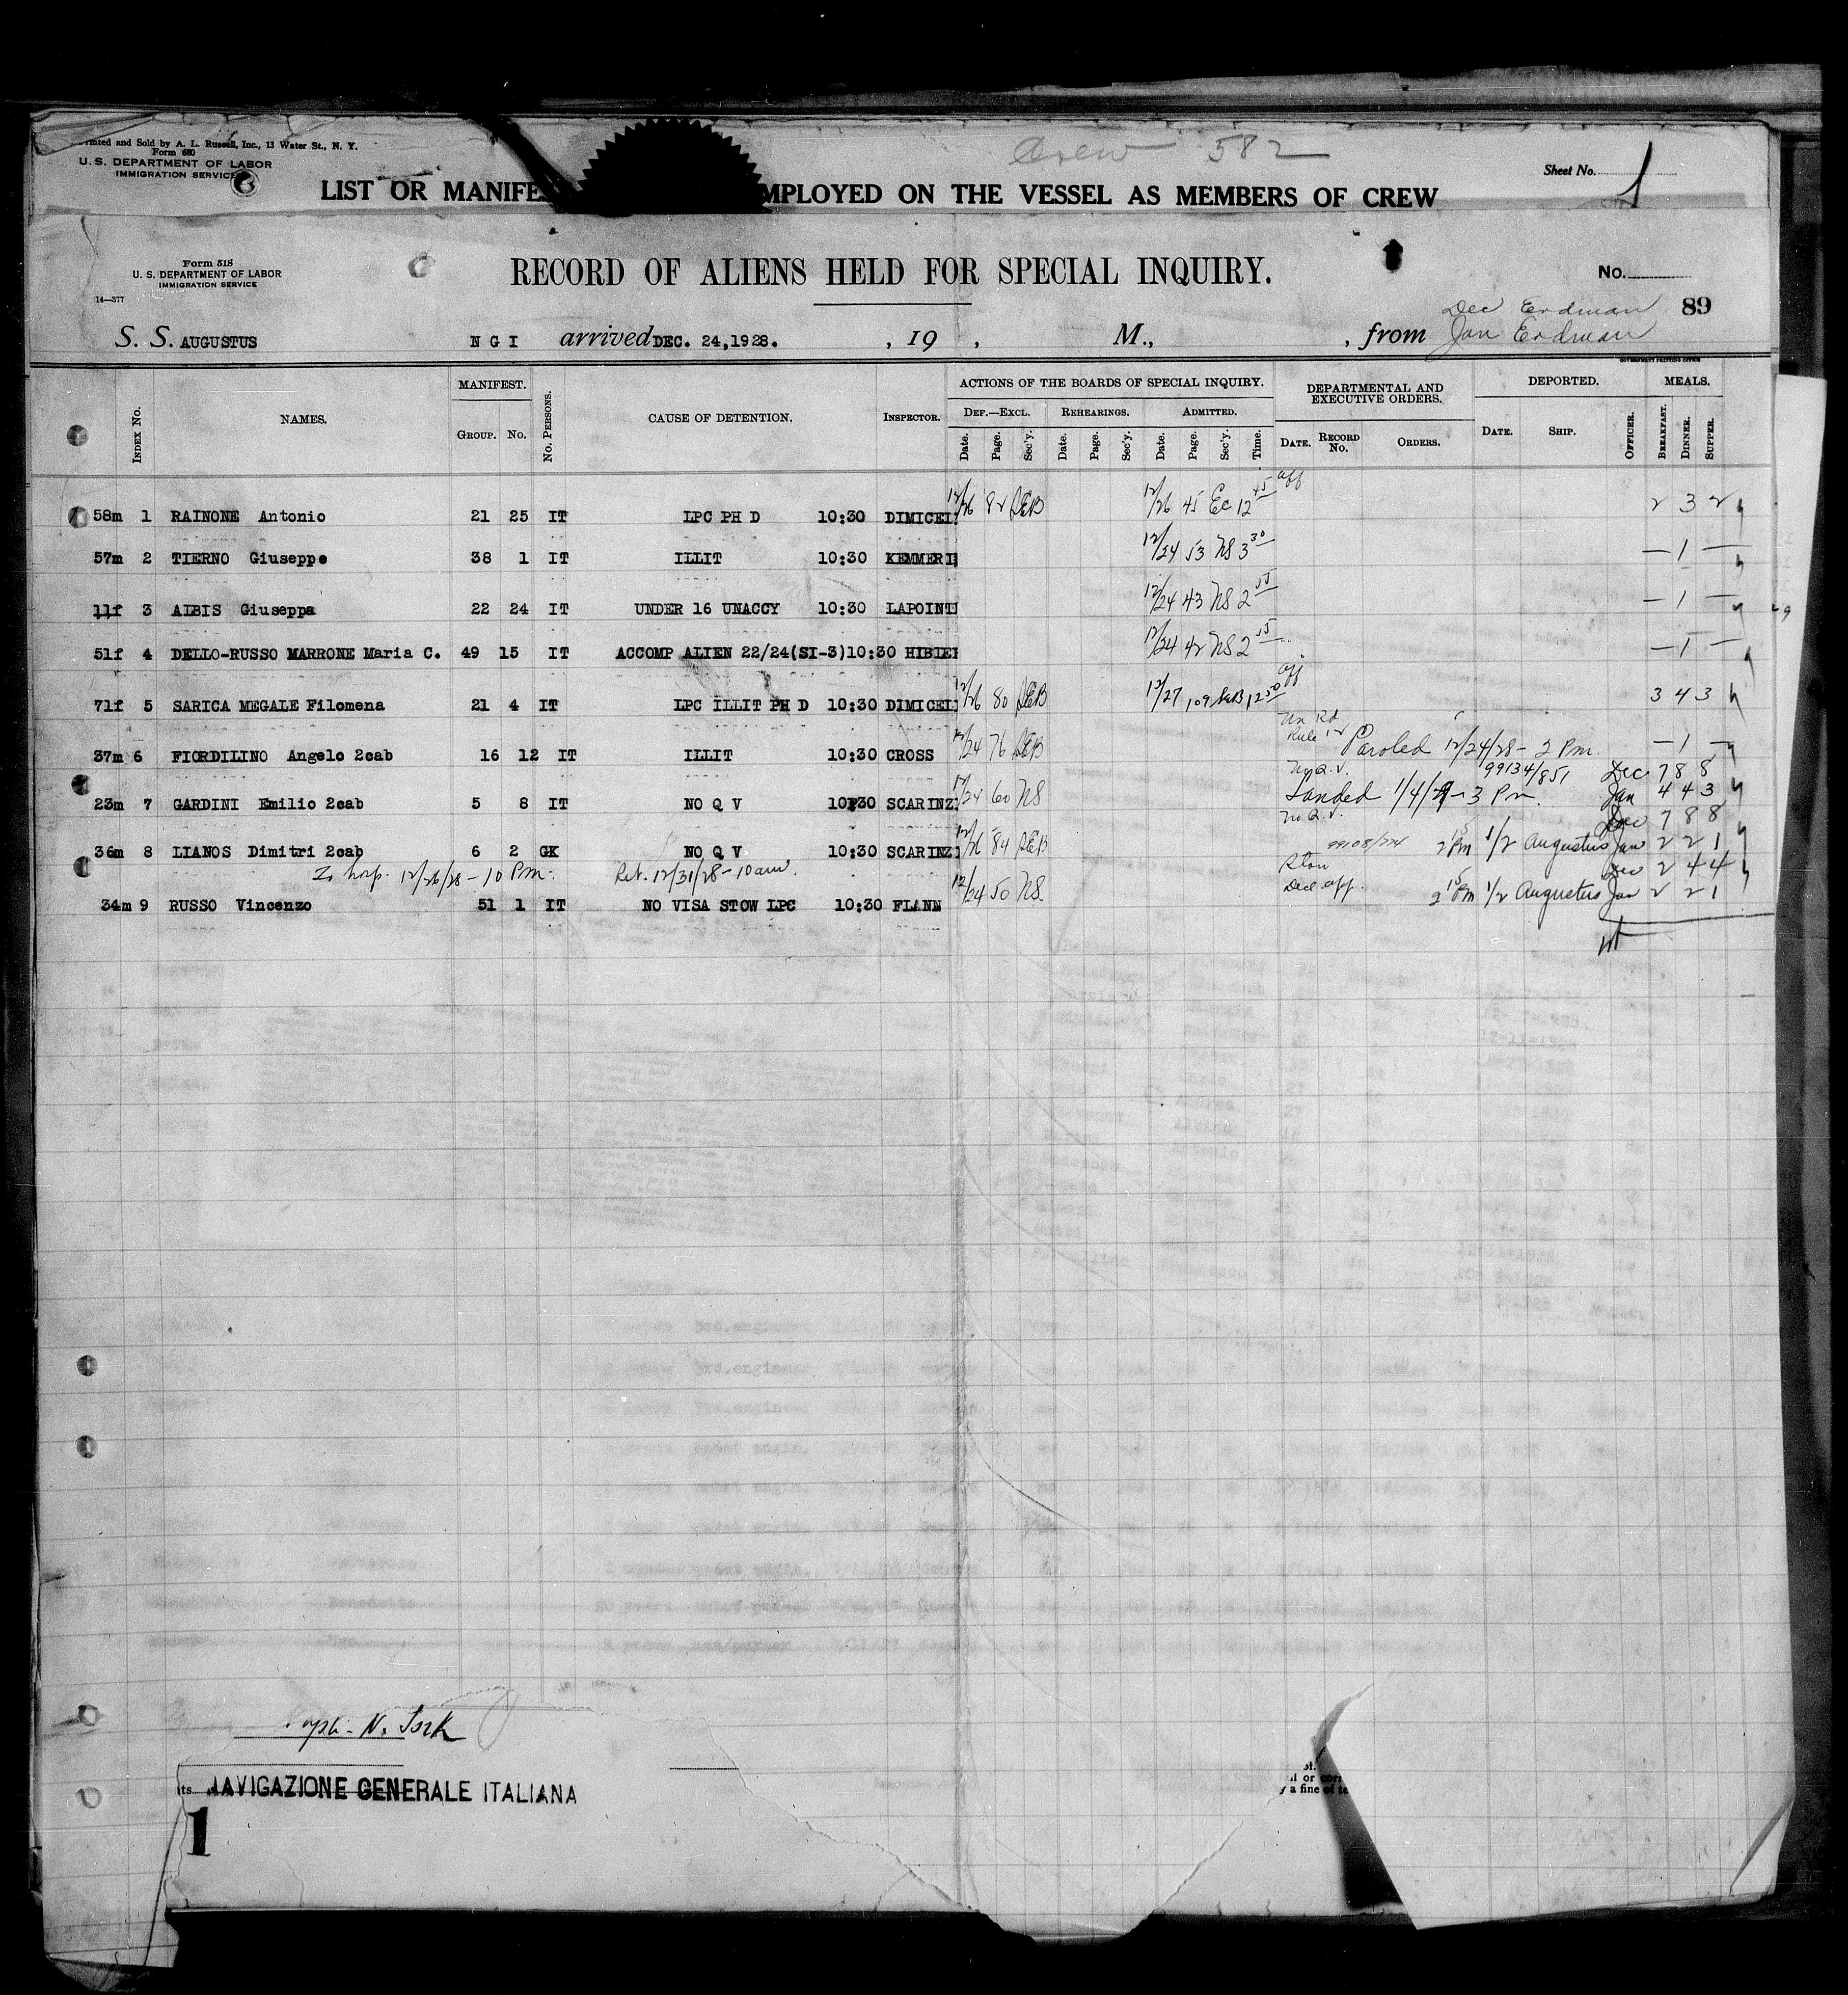 Printed and Sold by A. L. Russell, Inc., 13 Water St., N. Y.
Form 680
U. S. DEPARTMENT OF LABOR
IMMIGRATION SERVICE
Crew 582
Sheet No. 1
LIST OR MANIFE MPLOYED ON THE VESSEL AS MEMBERS OF CREW
Form 518
U. S. DEPARTMENT OF LABOR
IMMIGRATION SERVICE
14—377
RECORD OF ALIENS HELD FOR SPECIAL INQUIRY.
No.
89
Dec Erdman
S. S. AUGUSTUS N G I arrived DEC. 24,1928. , 19 , M., , from Jan Erdman
GOVERNMENT PRINTING OFFICE
Index No. NAMES. MANIFEST. GROUP. No. No. PERSONS. CAUSE OF DETENTION. INSPECTOR. ACTIONS OF THE BOARDS OF SPECIAL INQUIRY. DEPARTMENTAL AND EXECUTIVE ORDERS. DEPORTED. MEALS.
DEF.—EXCL. REHEARINGS. ADMITTED.
Date. Page. Sec'y. Date. Page. Sec'y. Date. Page. Sec'y. Time. DATE. RECORD No. ORDERS. DATE. SHIP. OFFICER. BREAKFAST. DINNER. SUPPER.
58m 1 RAINONE Antonio 21 25 IT LPC PH D 10:30 DIMICEL 12/26 82 DEB 12/26 45 EC 12 45 aff 2 3 2
57m 2 TIERNO Giuseppe 38 1 IT ILLIT 10:30 KEMMERI 12/24 53 NS 3 30 — 1 —
11f 3 ALBIS Giuseppa 22 24 IT UNDER 16 UNACCY 10:30 LAPOINT 12/24 43 NS 2 55 — 1 —
51f 4 DELLO-RUSSO MARRONE Maria C. 49 15 IT ACCOMP ALIEN 22/24(SI-3)10:30 HIBIE 12/24 42 NS 2 55 — 1 —
71f 5 SARICA MEGALE Filomena 21 4 IT LPC ILLIT PH D 10:30 DIMICEL 12/26 80 DEB 12/27 109 DEB 12 50 aff 3 4 3
37m 6 FIORDILINO Angelo 2cab 16 12 IT ILLIT 10:30 CROSS 12/24 76 DEB Rule 12 Paroled 12/24/28 - 2 Pm. — 1 —
No Q.V. 99134/851 Dec 7 8 8
23m 7 GARDINI Emilio 2cab 5 8 IT NO Q V 10:30 SCARINZ 12/24 60 NS Landed 1/4/29 - 3 Pm. Jan 4 4 3
No Q.V. Dec 7 8 8
36m 8 LIANOS Dimitri 2cab 6 2 GK NO Q V 10:30 SCARINZ 12/26 84 DEB 2 15 Pm 1/2 Augustus Jan 2 2 1
To hosp. 12/26/28 - 10 Pm. Ret. 12/31/28 - 10 am. Dec 2 4 4
34m 9 RUSSO Vincenzo 51 1 IT NO VISA STOW LPC 10:30 FLANN 12/24 50 NS 2 15 Pm 1/2 Augustus Jan 2 2 1
N. York
NAVIGAZIONE GENERALE ITALIANA
1
a fine of